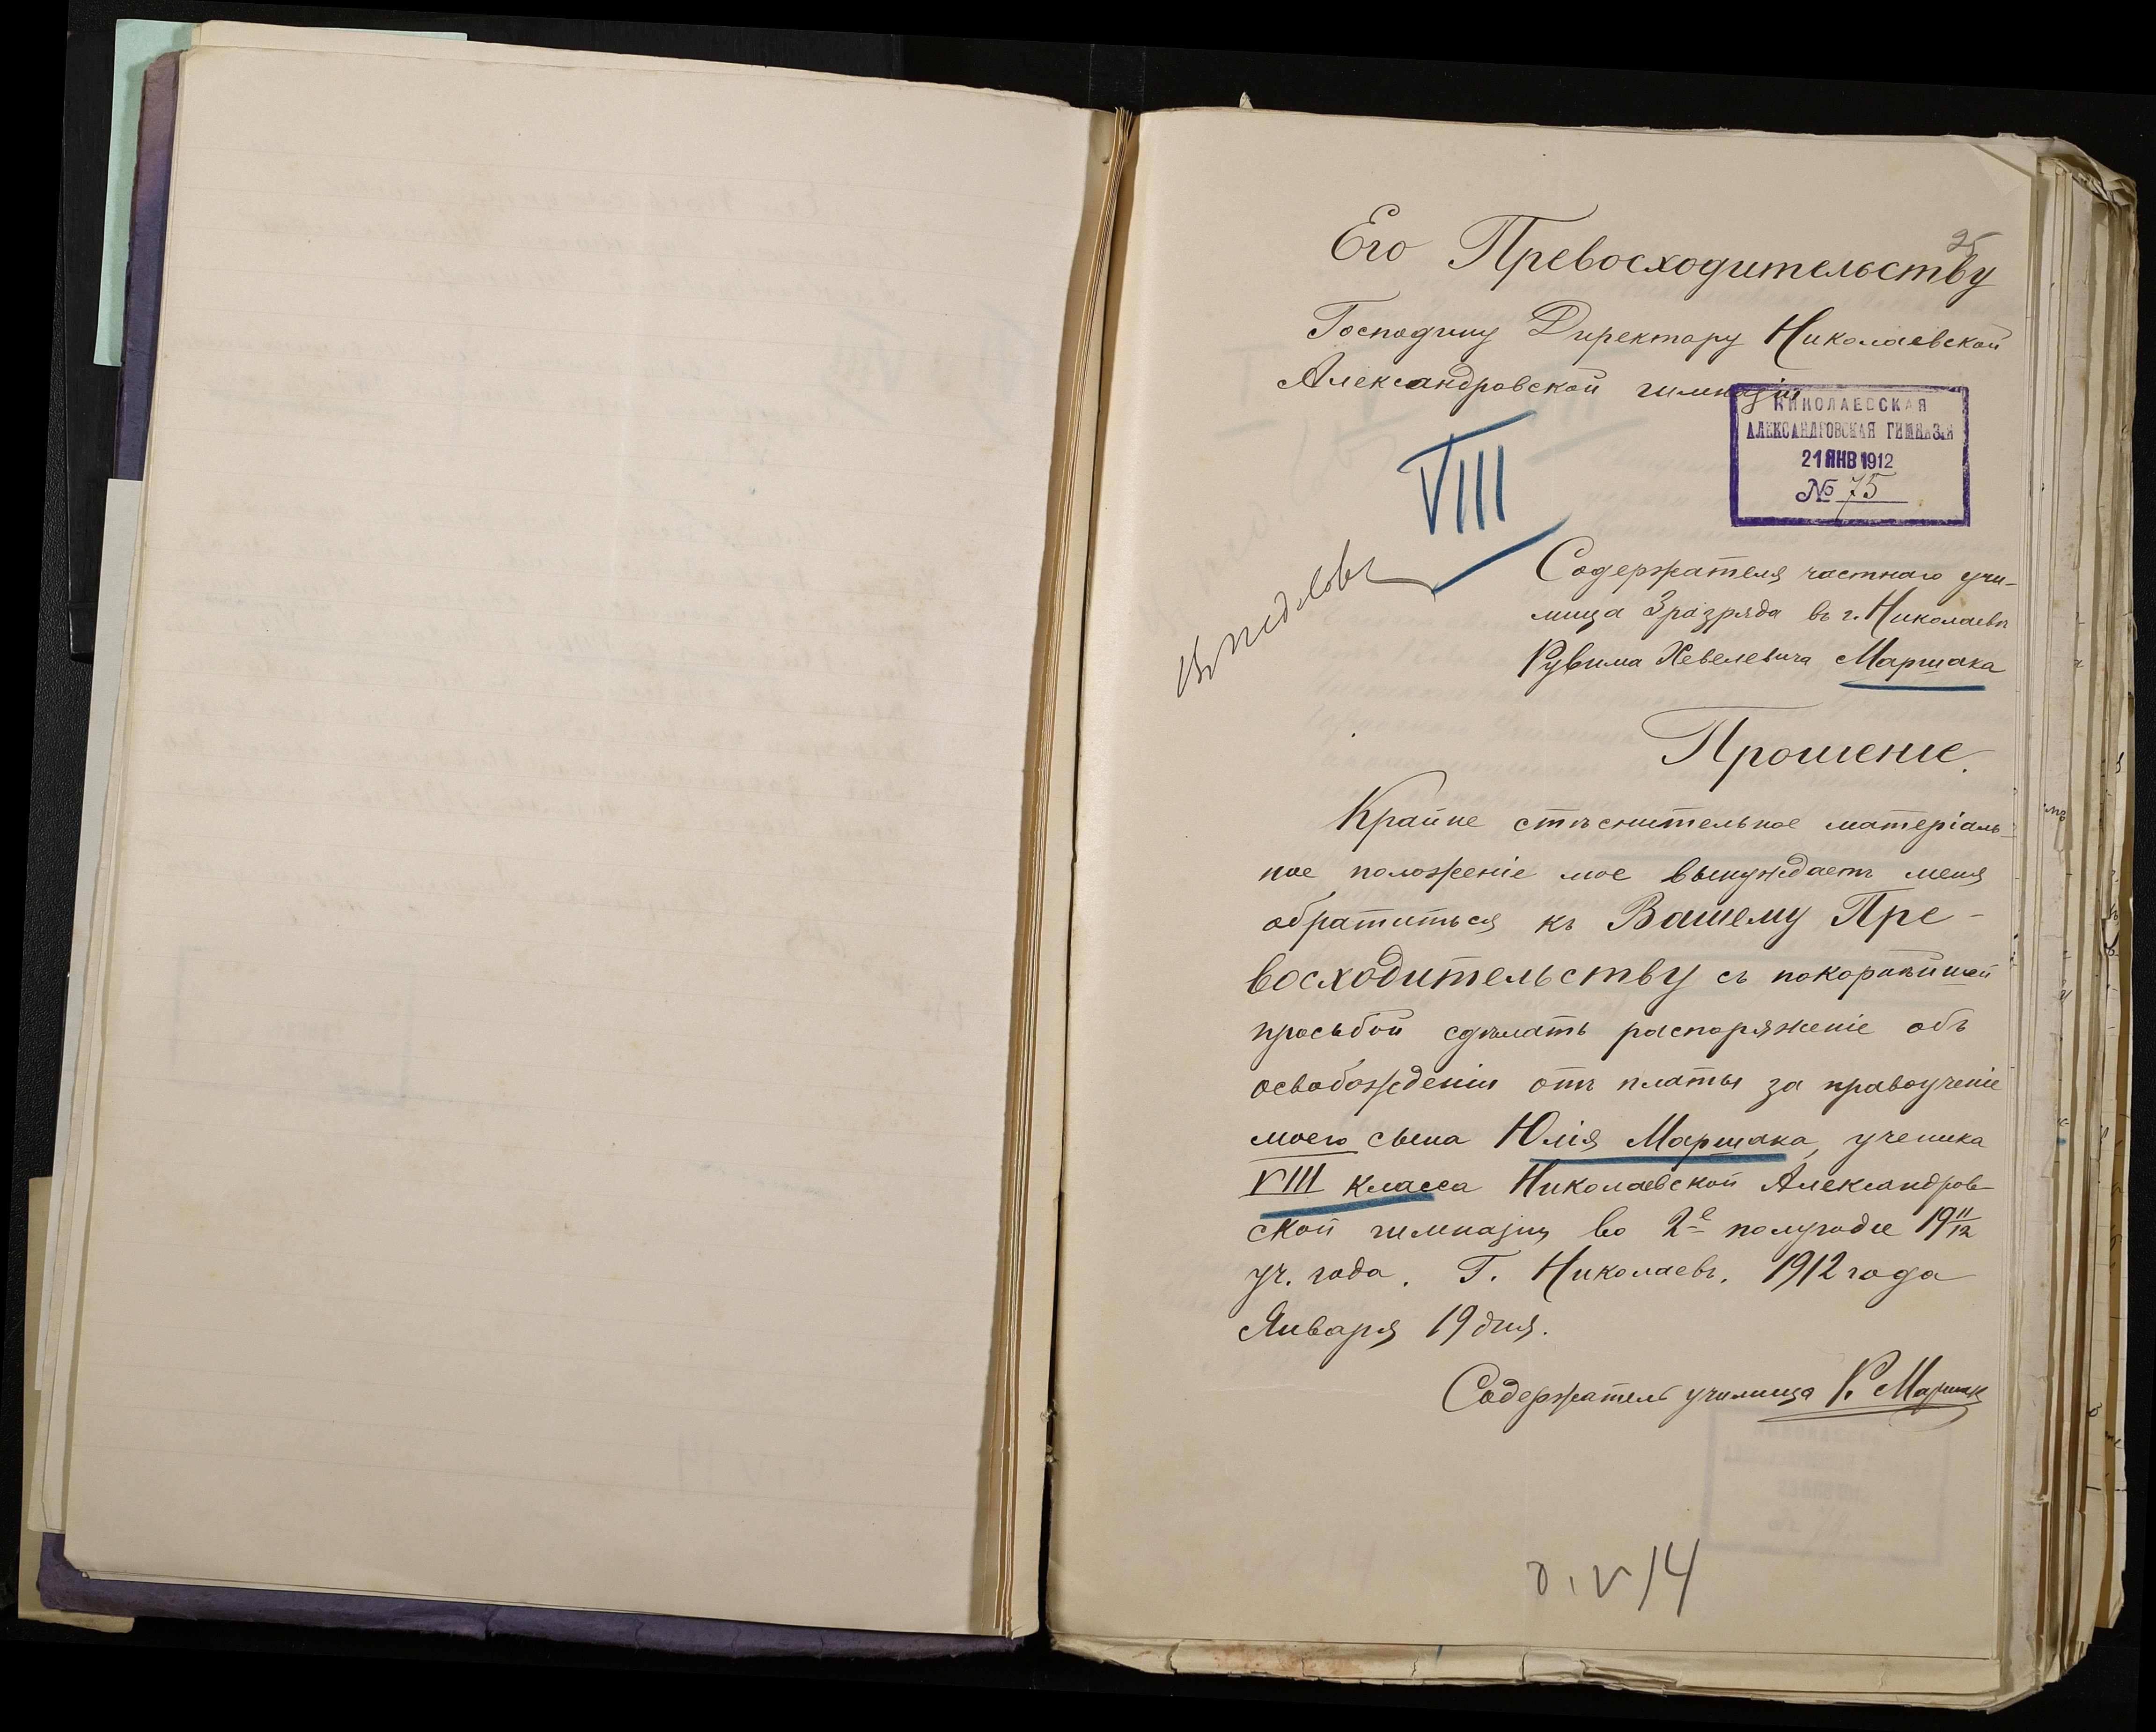 25
Его Превосходительству
Господину Директору Николаевской
Александровской гимназіи
НИКОЛАЕВСКАЯ
АЛЕКСАНДРОВСКАЯ ГИМНАЗІЯ
21 ЯНВ 1912
№ 75
VIII
Содержателя частнаго учи-
лища 3 разряда въ г. Николаевѣ
Рувима Хевелевича Маршака
Прошеніе.
Крайне стѣснительное матеріаль-
ное положеніе мое вынуждаетъ меня
обратиться къ Вашему Пре-
восходительству съ покорнѣйшей
просьбой сдѣлать распоряженіе объ
освобожденіи отъ платы за правоученіе
моего сына Юлія Маршака, ученика
VIII класса Николаевской Александров-
ской гимназіи во 2-е полугодіе 19 11/12
уч. года. Г. Николаевъ. 1912 года
Января 19 дня.
Содержатель училища Р. Маршак